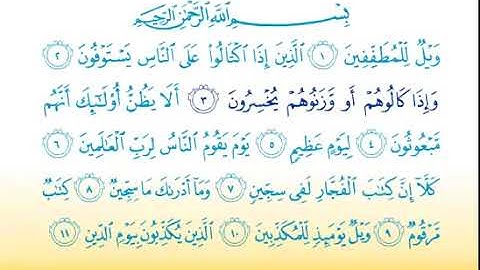 بِسْمِ اللَّهِ الرَّحْمَٰنِ الرَّحِيمِ
وَيْلٌ لِّلْمُطَفِّفِينَ ١ الَّذِينَ إِذَا اكْتَالُوا عَلَى النَّاسِ يَسْتَوْفُونَ ٢
وَإِذَا كَالُوهُمْ أَو وَّزَنُوهُمْ يُخْسِرُونَ ٣ أَلَا يَظُنُّ أُولَٰئِكَ أَنَّهُم
مَّبْعُوثُونَ ٤ لِيَوْمٍ عَظِيمٍ ٥ يَوْمَ يَقُومُ النَّاسُ لِرَبِّ الْعَالَمِينَ ٦
كَلَّا إِنَّ كِتَابَ الْفُجَّارِ لَفِي سِجِّينٍ ٧ وَمَا أَدْرَاكَ مَا سِجِّينٌ ٨ كِتَابٌ
مَّرْقُومٌ ٩ وَيْلٌ يَوْمَئِذٍ لِّلْمُكَذِّبِينَ ١٠ الَّذِينَ يُكَذِّبُونَ بِيَوْمِ الدِّينِ ١١